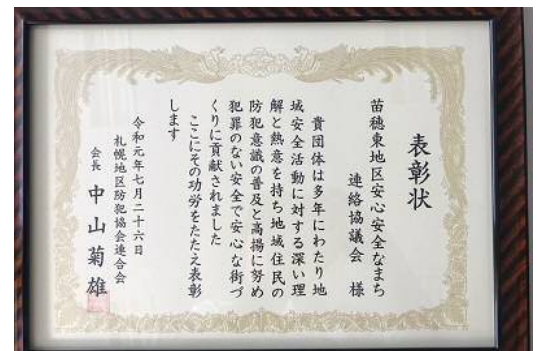 表彰状
苗穂東地区安心安全なまち
連絡協議会 様
貴団体は多年にわたり地
域安全活動に対する深い理
解と熱意を持ち地域住民の
防犯意識の普及と高揚に努め
犯罪のない安全で安心な街づ
くりに貢献されました
ここにその功労をたたえ表彰
します
令和元年七月二十六日
札幌地区防犯協会連合会
会長 中山菊雄